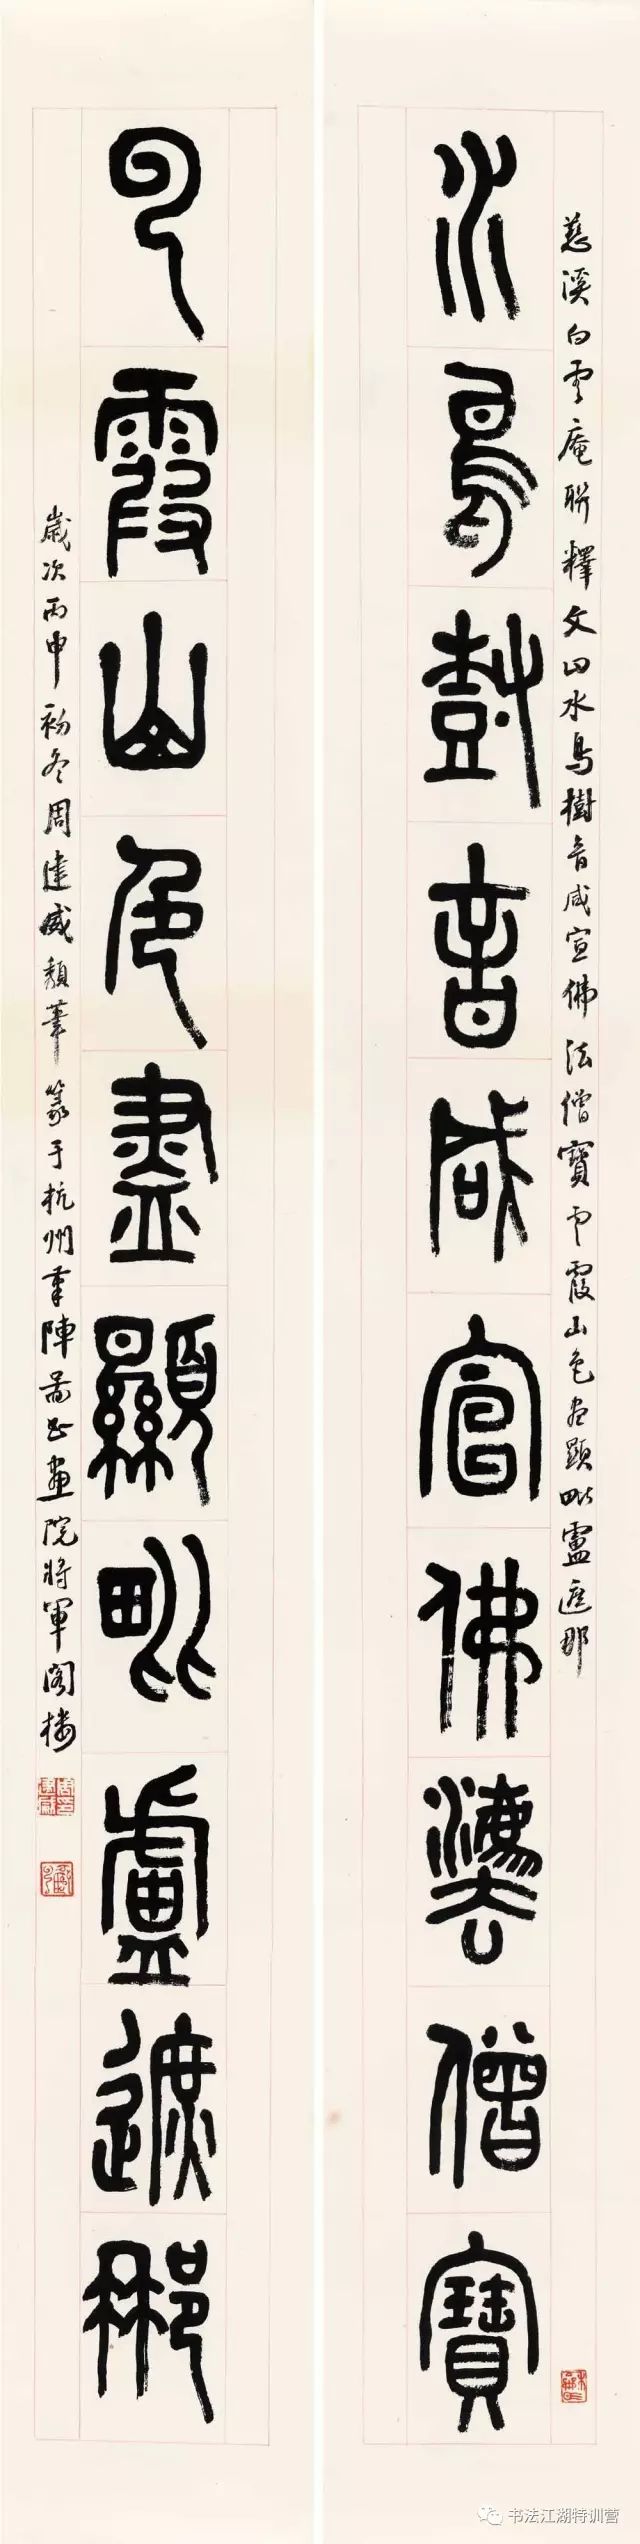 慈溪白雲庵聯釋文曰水鳥樹音咸宣佛法僧寶雲霞山色盡顯毗盧遮那
水鳥尌音咸宣佛灋僧寶
云霞山色盡顯毗盧遮那
歲次丙申初冬周建威頹筆篆于杭州筆陣圖書畫院將軍閣樓
书法江湖特训营